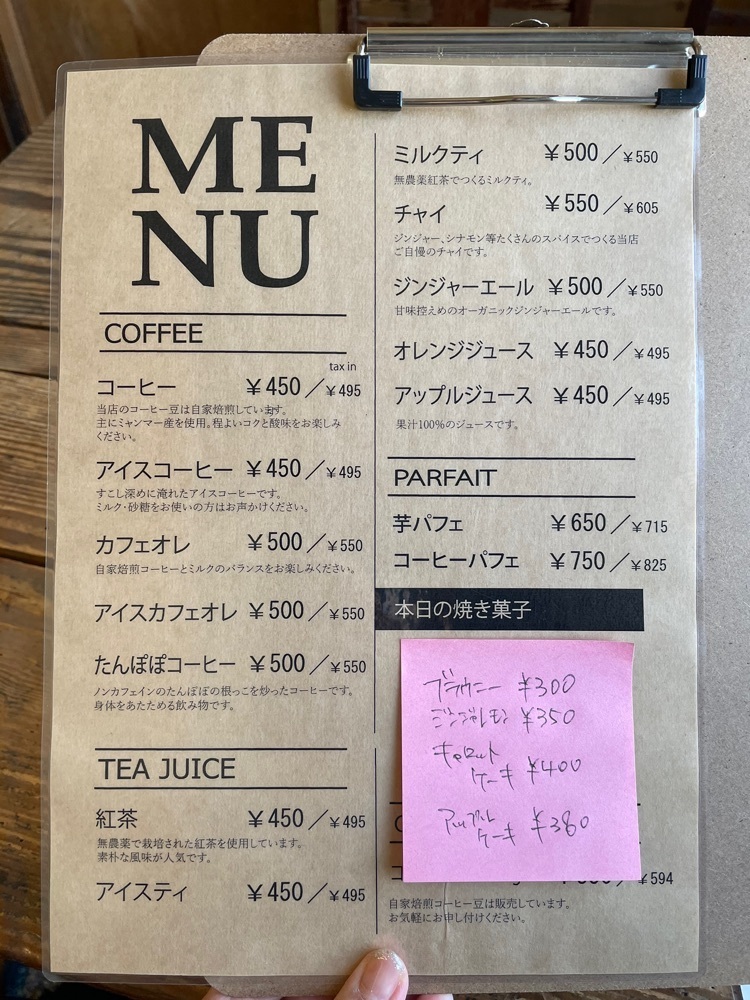 ME
NU
COFFEE
tax in
コーヒー ￥450／￥495
当店のコーヒー豆は自家焙煎しています。
主にミャンマー産を使用。程よいコクと酸味をお楽しみ
ください。
アイスコーヒー ￥450／￥495
すこし深めに淹れたアイスコーヒーです。
ミルク・砂糖をお使いの方はお声かけください。
カフェオレ ￥500／￥550
自家焙煎コーヒーとミルクのバランスをお楽しみください。
アイスカフェオレ ￥500／￥550
たんぽぽコーヒー ￥500／￥550
ノンカフェインのたんぽぽの根っこを炒ったコーヒーです。
身体をあたためる飲み物です。
TEA JUICE
紅茶 ￥450／￥495
無農薬で栽培された紅茶を使用しています。
素朴な風味が人気です。
アイスティ ￥450／￥495
ミルクティ ￥500／￥550
無農薬紅茶でつくるミルクティ。
チャイ ￥550／￥605
ジンジャー、シナモン等たくさんのスパイスでつくる当店
ご自慢のチャイです。
ジンジャーエール ￥500／￥550
甘味控えめのオーガニックジンジャーエールです。
オレンジジュース ￥450／￥495
アップルジュース ￥450／￥495
果汁100％のジュースです。
PARFAIT
芋パフェ ￥650／￥715
コーヒーパフェ ￥750／￥825
本日の焼き菓子
ブラウニー ¥300
ジンジャレモン ¥350
キャロット
ケーキ ¥400
アップル
ケーキ ¥380
￥594
自家焙煎コーヒー豆は販売しています。
お気軽にお申し付けください。